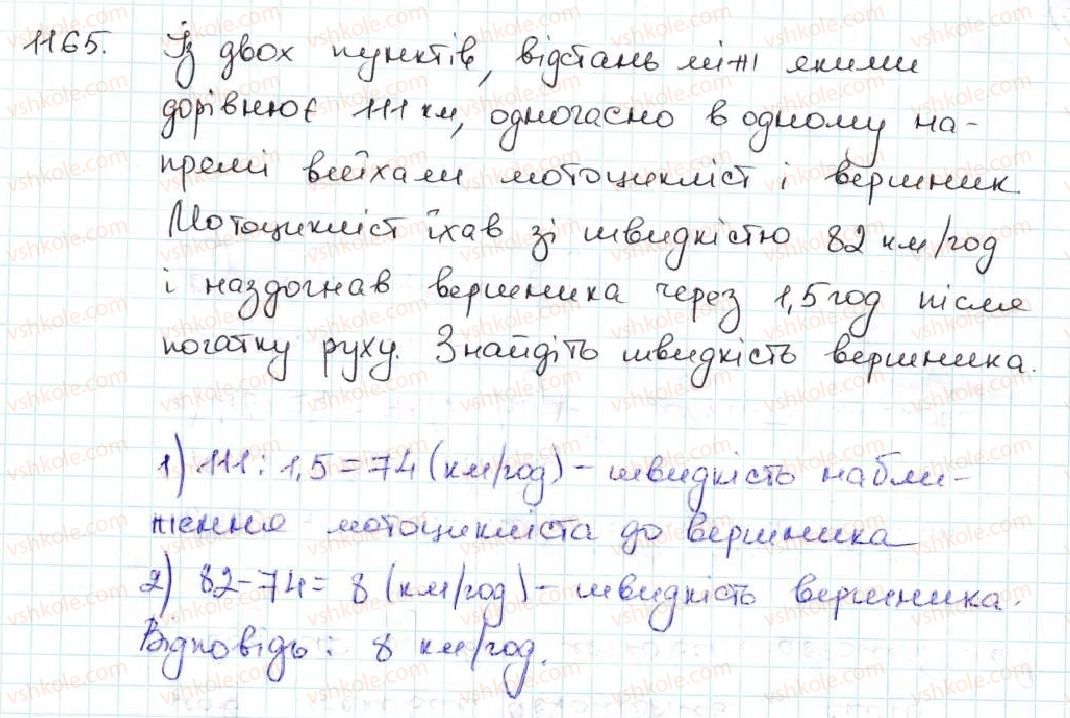 1165. Із двох пунктів, відстань між якими
дорівнює 111 км, одночасно в одному на-
прямі виїхали мотоцикліст і вершник.
Мотоцикліст їхав зі швидкістю 82 км/год
і наздогнав вершника через 1,5 год після
початку руху. Знайдіть швидкість вершника.
1) 111 : 1,5 = 74 (км/год) - швидкість набли-
ження мотоцикліста до вершника
2) 82 - 74 = 8 (км/год) - швидкість вершника.
Відповідь : 8 км/год.
vshkole.com